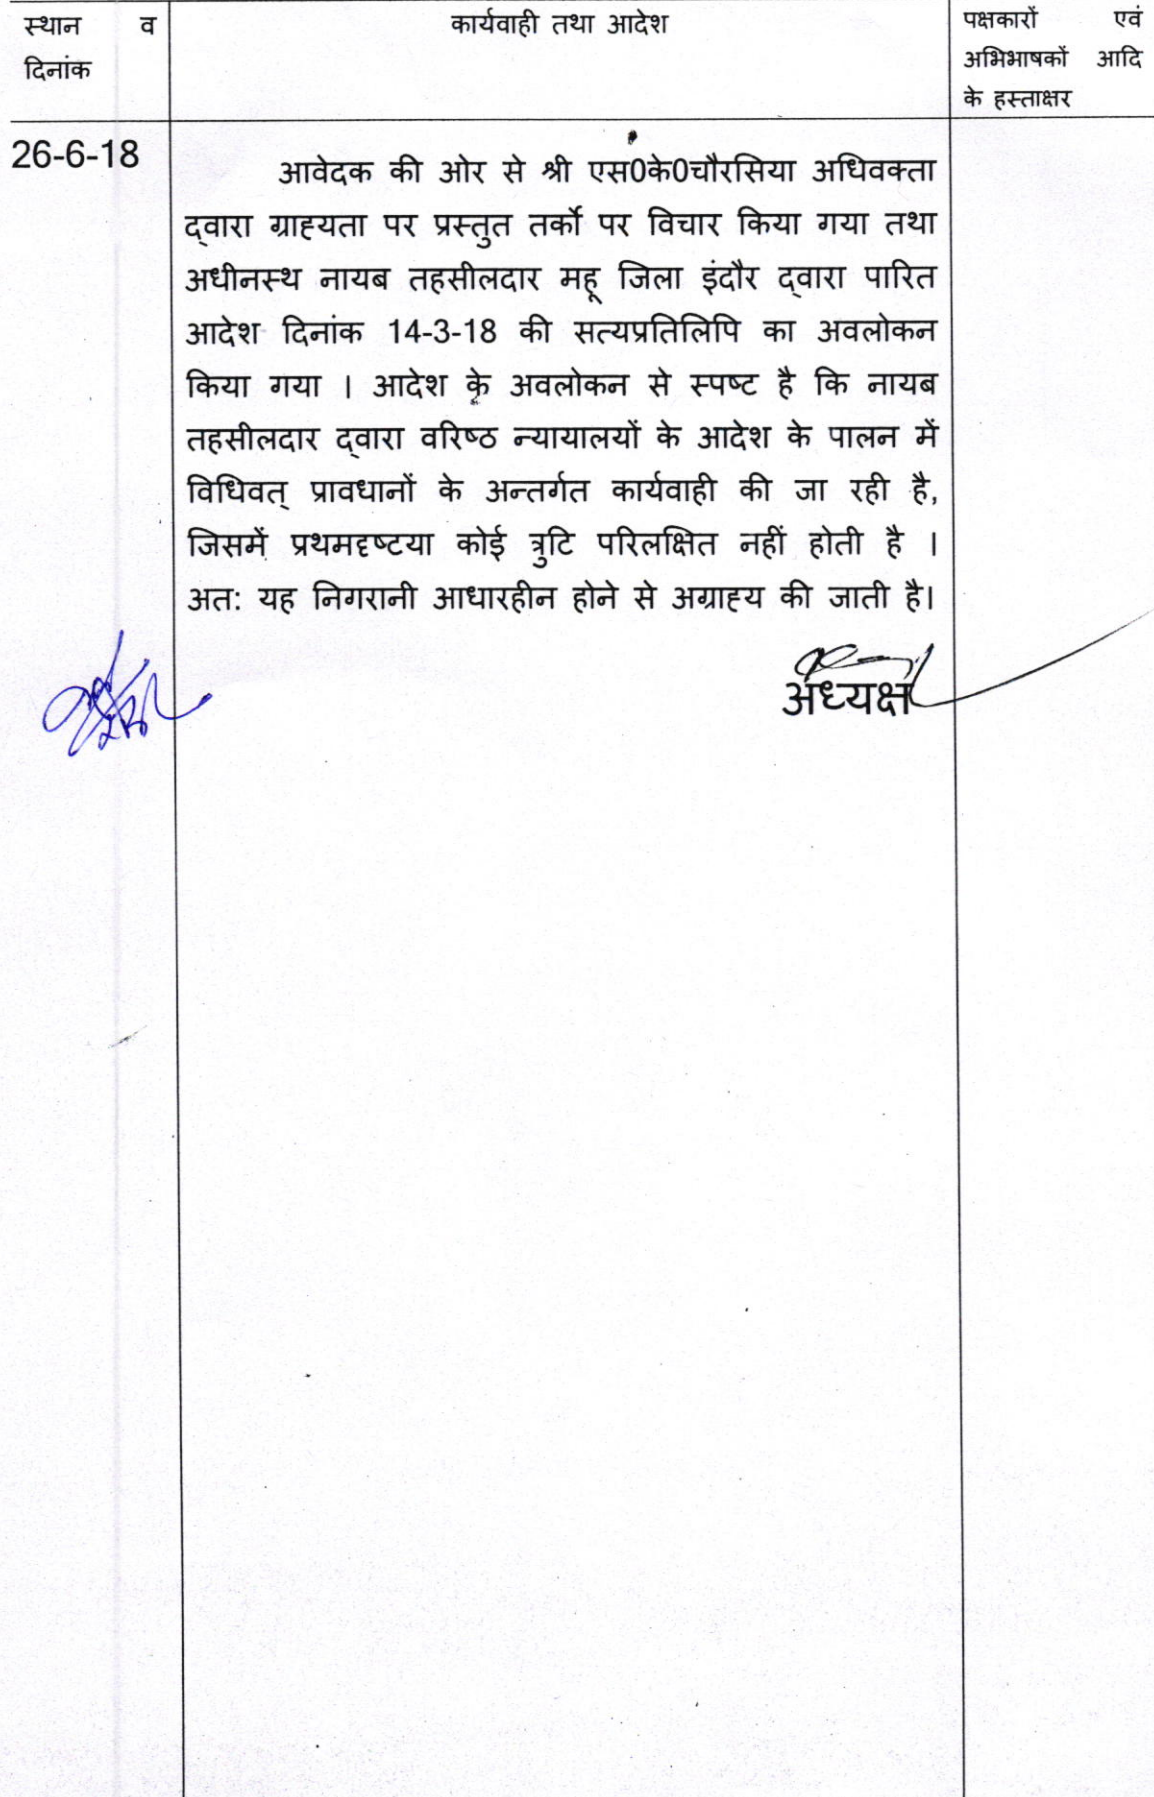 स्थान व
दिनांक
कार्यवाही तथा आदेश
पक्षकारों एवं
अभिभाषकों आदि
के हस्ताक्षर
26-6-18
आवेदक की ओर से श्री एस0के0चौरसिया अधिवक्ता
द्वारा ग्राह्यता पर प्रस्तुत तर्को पर विचार किया गया तथा
अधीनस्थ नायब तहसीलदार महू जिला इंदौर द्वारा पारित
आदेश दिनांक 14-3-18 की सत्यप्रतिलिपि का अवलोकन
किया गया । आदेश के अवलोकन से स्पष्ट है कि नायब
तहसीलदार द्वारा वरिष्ठ न्यायालयों के आदेश के पालन में
विधिवत् प्रावधानों के अन्तर्गत कार्यवाही की जा रही है,
जिसमें प्रथमदृष्टया कोई त्रुटि परिलक्षित नहीं होती है ।
अत: यह निगरानी आधारहीन होने से अग्राह्य की जाती है।
अध्यक्ष